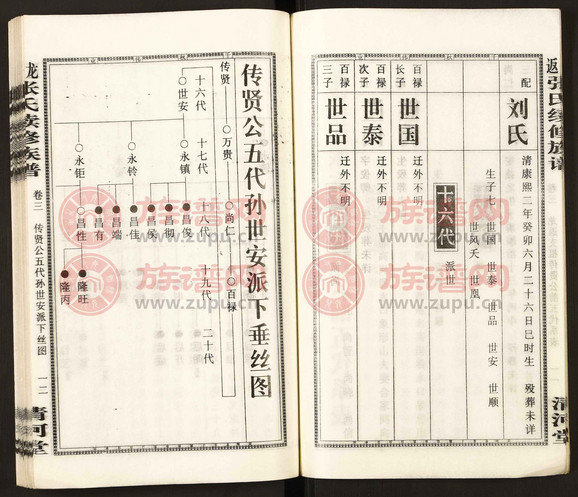 返
张氏续修族谱
清河堂
配
刘氏
清康熙二年癸卯六月二十六日巳时生 殁葬未详
生子七 世国 世泰 世品 世安 世顺
世凤夭 世凰
十六代
派世
百禄
长子
世国
迁外不明
百禄
次子
世泰
迁外不明
百禄
三子
世品
迁外不明
传贤公五代孙世安派下垂丝图
传贤
○万贵
○尚仁
○百禄
十六代
十七代
十八代
十九代
二十代
○世安
○永镇
○永铃
○永钜
●昌俊
●昌彻
●昌侯
●昌佳
●昌端
●昌有
○昌性
●隆旺
●隆丙
龙
张氏续修族谱
卷二
传贤公五代孙世安派下垂丝图
一二
清河堂
族谱网
www.zupu.cn
族谱网
www.zupu.cn